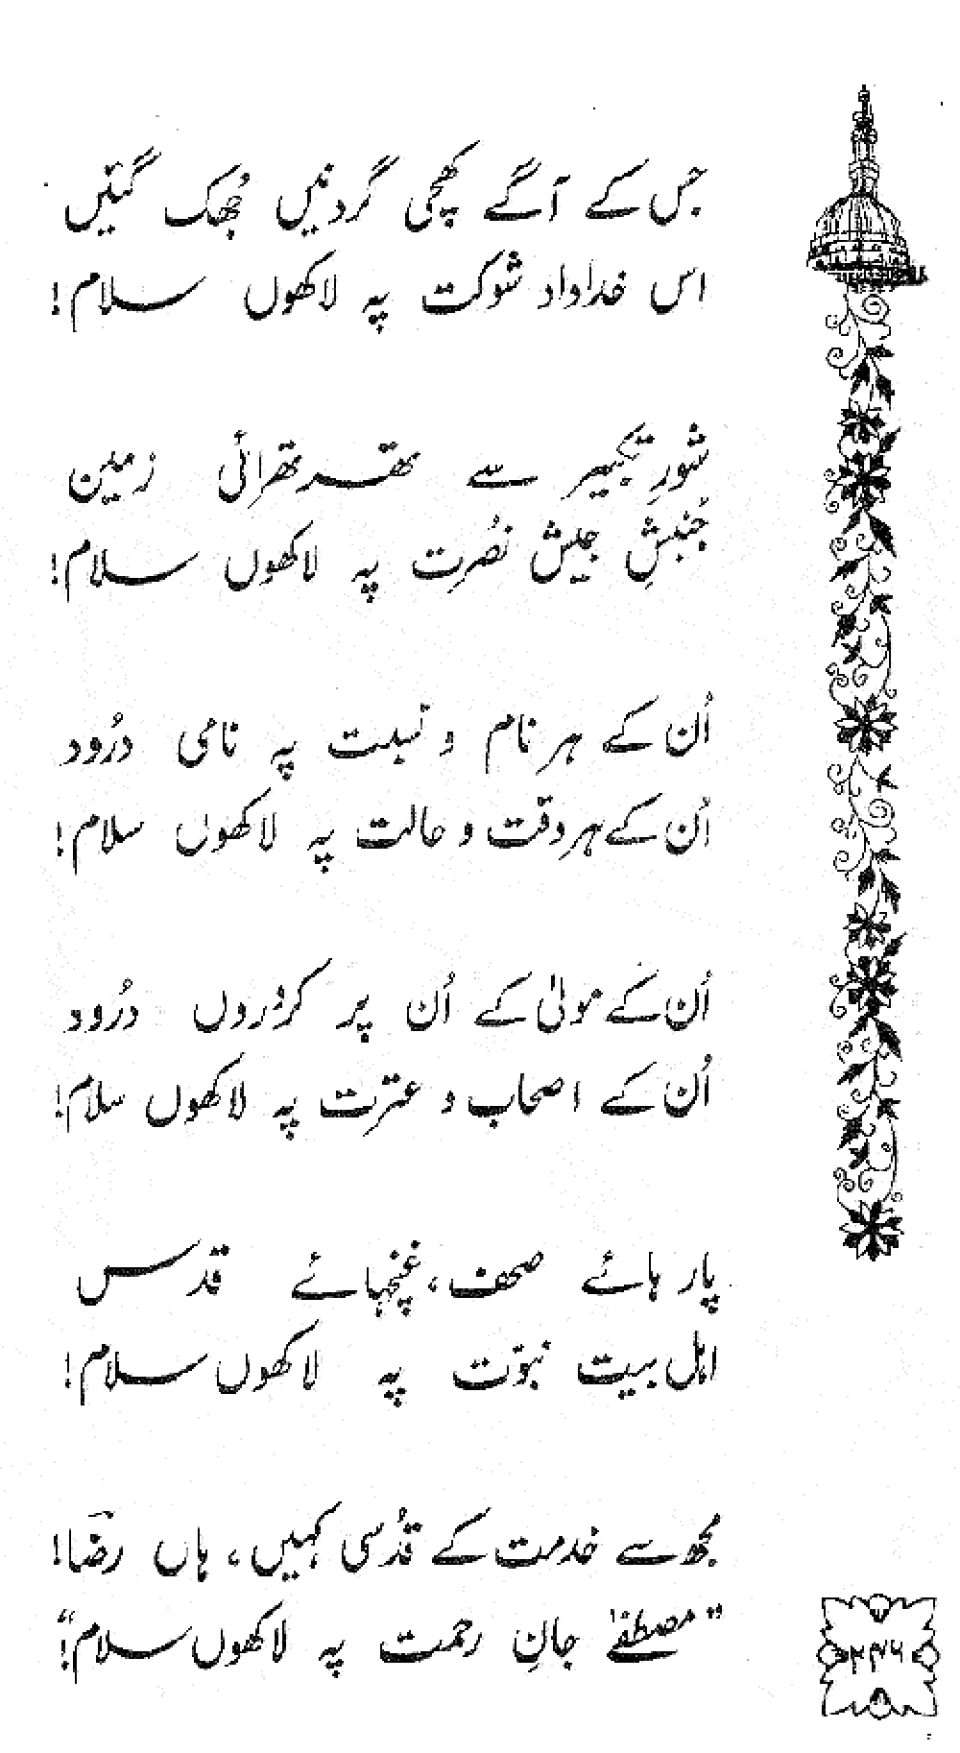 جس کے آگے کھچی گردنیں جُھک گئیں
اس خداداد شوکت پہ لاکھوں سلام!
شورِ تکبیر سے تھرتھرائی زمین
جُنبشِ جیش نصُرت پہ لاکھوں سلام!
اُن کے ہر نام و نسبت پہ نامی درُود
اُن کے ہر وقت و حالت پہ لاکھوں سلام!
اُن کے مولیٰ کے اُن پر کروروں درُود
اُن کے اصحاب و عترت پہ لاکھوں سلام!
پار ہائے صحف، غنچہائے قدس
اہل بیت نبوّت پہ لاکھوں سلام!
مُجھ سے خدمت کے قُدسی کہیں، ہاں رضؔا!
"مصطفےٰ جانِ رحمت پہ لاکھوں سلام!"
۲۴۶